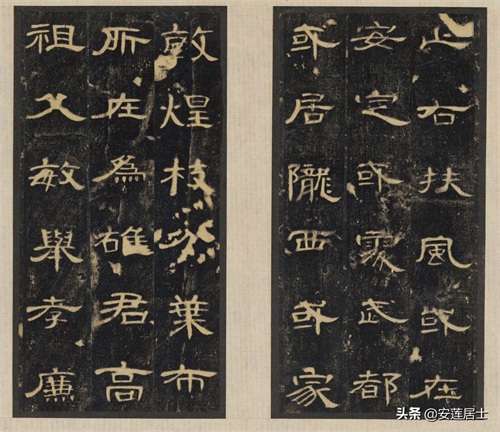 止右扶風或在
安定或處武都
或居隴西或家
敦煌枝分葉布
所在為雄君高
祖父敏舉孝廉
头条 @安莲居士